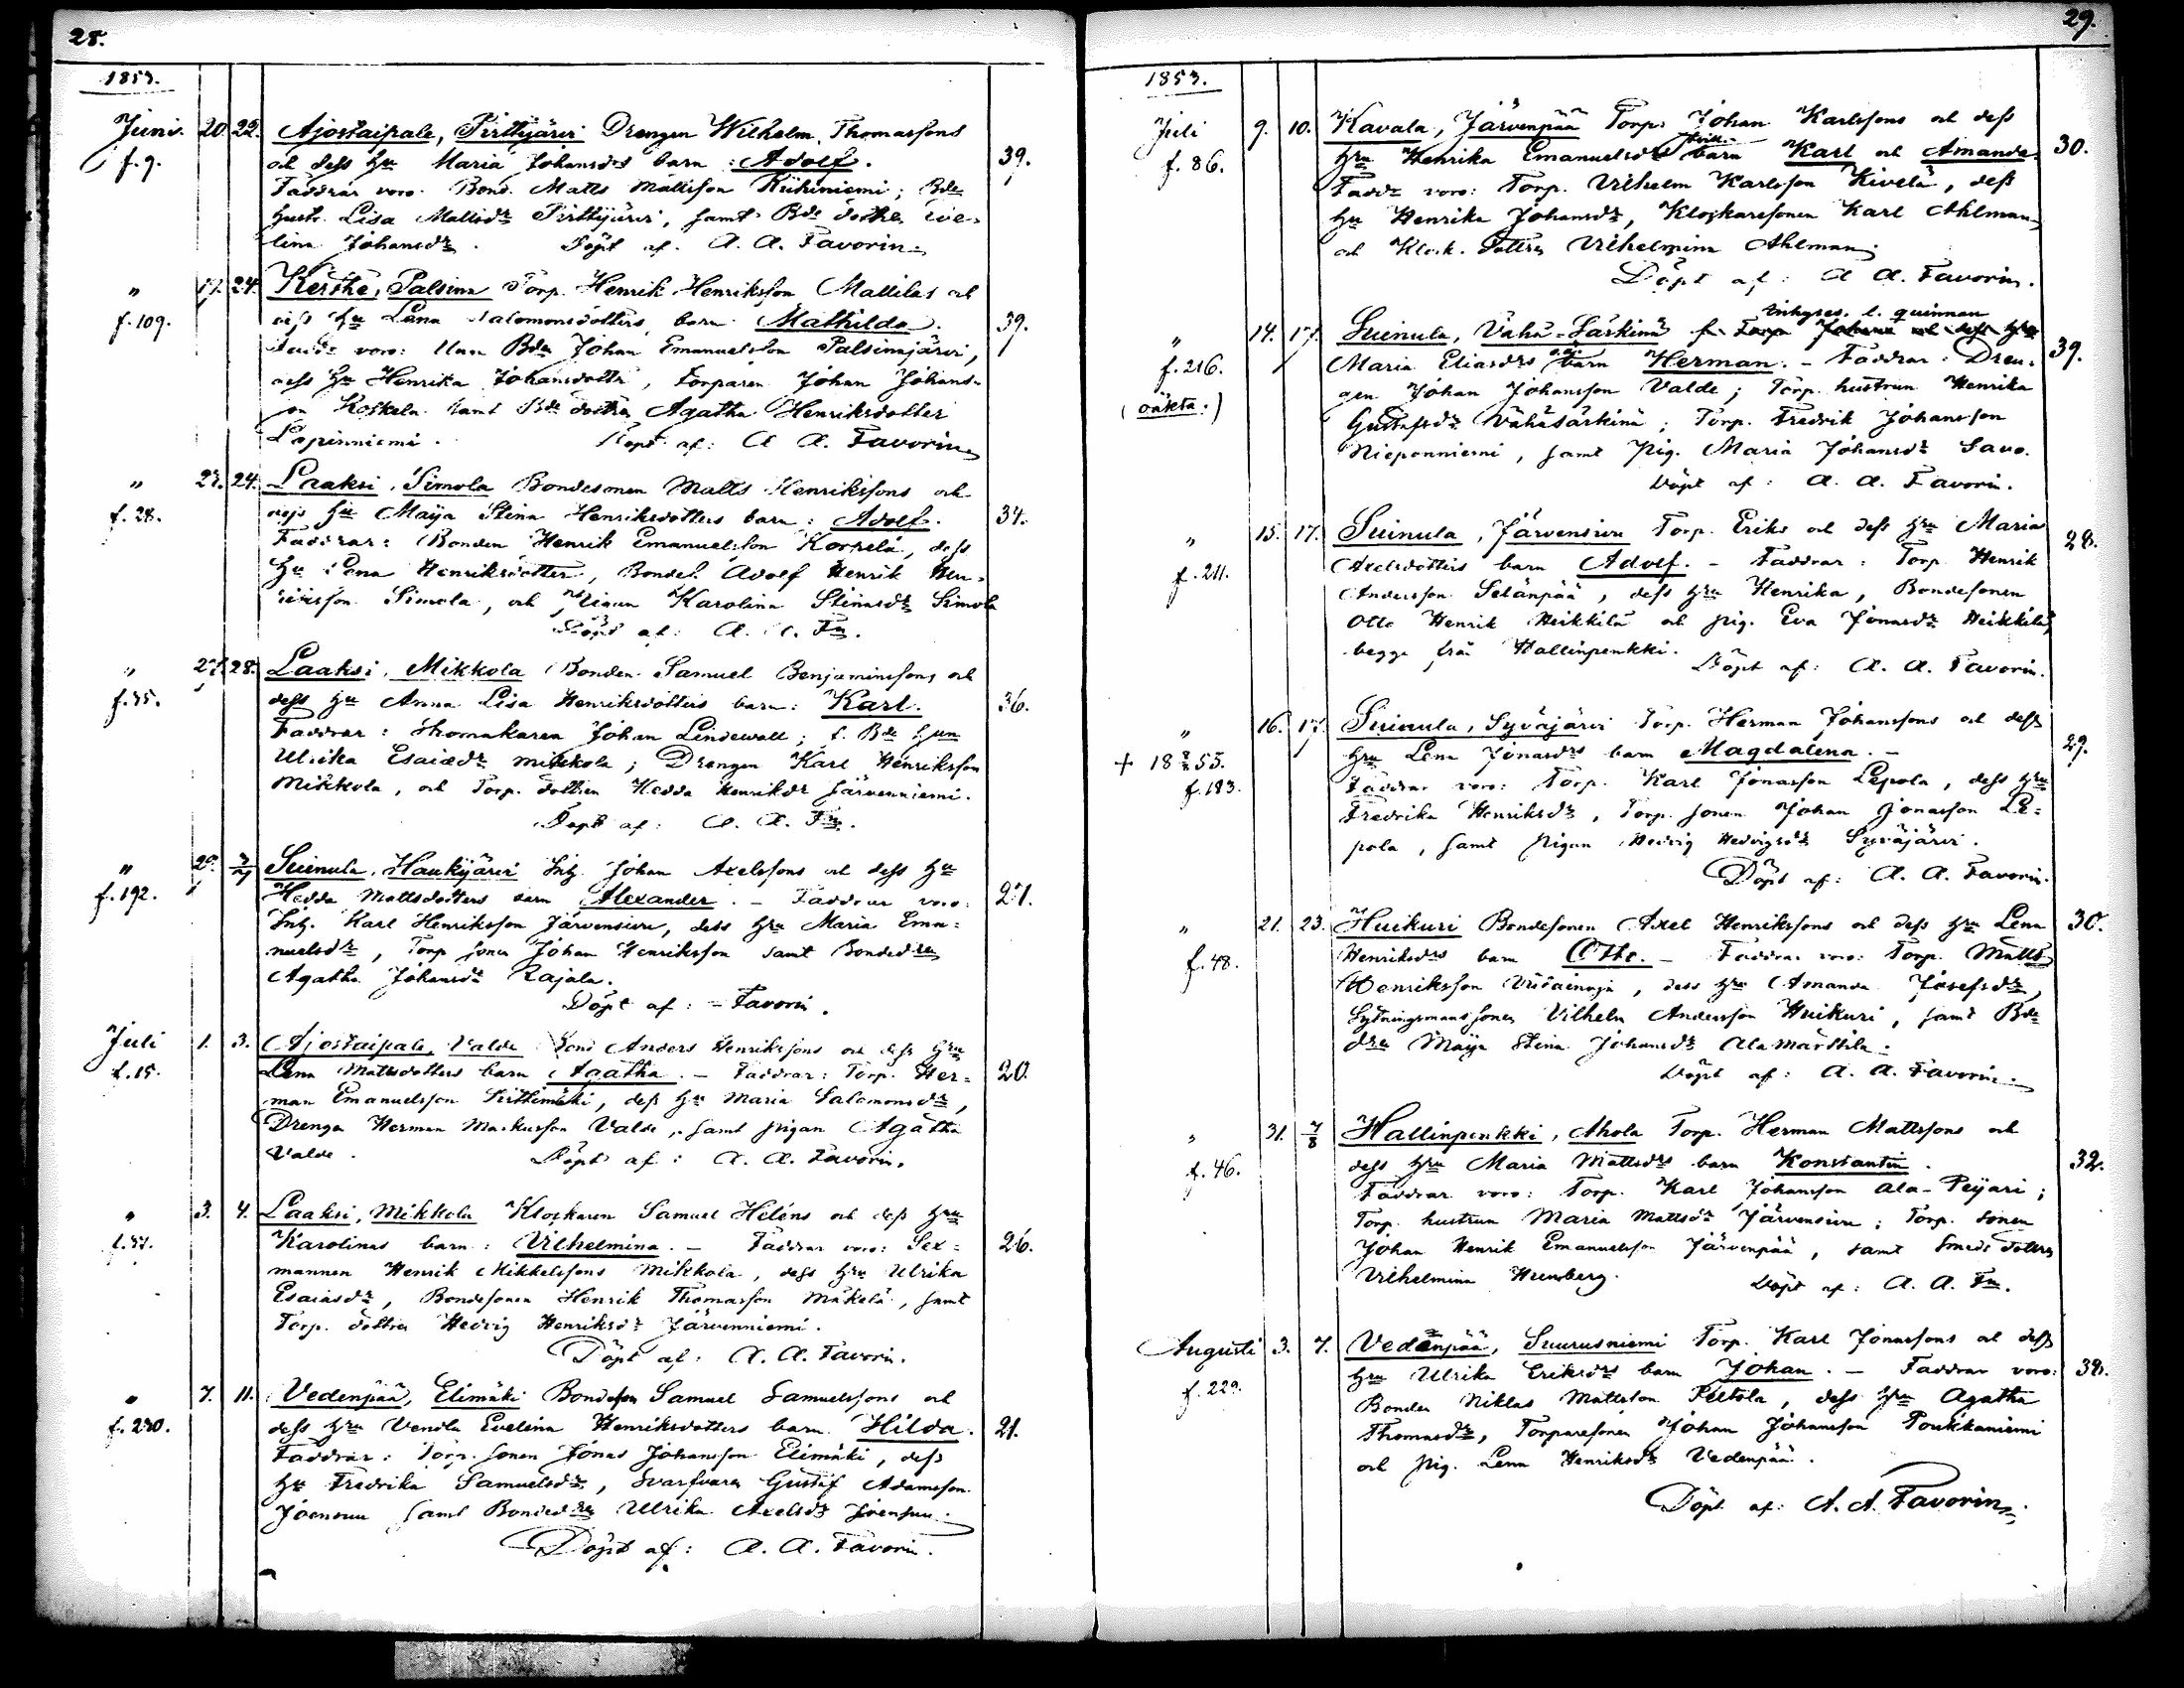 28.
1853.
Junii. 20. 22. Ajostaipale, Pirttijärvi Drengen Wilhelm Thomassons
f. 9. och dess Hu Maria Johansdrs barn: Adolf. 39.
Faddrar voro. Bond. Matts Mattsson Riihiniemi; Bde
hustr. Lisa Mattsdr Pirttijärvi, samt Bde dottren Eve-
lina Johansdr. Döpt af. A. A. Favorin.
" 17. 24. Palsina Torp. Henrik Henriksson Mattilas och
f. 109. dess Hu Lena Salomonsdotters barn Mathilda. 39.
voro: Unn Bde Johan Emanuelsson Palsinajärvi,
dess Hu Henrika Johansdotter, torparen Johan Johans-
on Koskela samt Bde dottren Agatha Henriksdotter
Lapinniemi. Döpt af: A A. Favorin
" 23. 24. Laaksi, Simola Bondesonen Matts Henrikssons och
f. 28. dess Hu Maija Stina Henriksdotters barn: Adolf. 34.
Faddrar: Bonden Henrik Emanuelsson Korpela, dess
Hu Lena Henriksdotter, Bondes. Adolf Henrik Hen-
riksson Simola, och Pigan Karolina Stinasdr Simola
Döpt af: A. A. Fn.
" 27. 28. Laaksi, Mikkola Bonden Samuel Benjaminssons och
f. 35. dess Hu Anna Lisa Henriksdotters barn: Karl. 36.
Faddrar: Skomakaren Johan Lindewall; f. Bde Hun
Ulrika Esaiædr Mikkola; Drengen Karl Henriksson
Mikkola, och Torp. dottren Hedda Henriksdr Järvenniemi.
Döpt af: A. A. Fn.
" 29. 3/7 Suinula, Haukijärvi Inh. Johan Axelssons och dess Hu
f. 192. Hedda Mattsdotters barn Alexander. - Faddrar voro: 27.
Inh. Karl Henriksson Järvensivu, dess Hru Maria Ema-
nuelsdr, Torp sonen Johan Henriksson samt Bondedrn
Agatha Johansdr Rajala.
Döpt af: - Favorin.
Juli 1. 3. Ajostaipale, Valde Bond Anders Henrikssons och dess Hru
f. 15. Lena Mattsdotters barn Agatha. - Faddrar: Torp. Her- 20.
man Emanuelsson Pirttimäki, dess Hu Maria Salomonsdr,
Drengen Herman Markusson Valde, samt pigan Agatha
Valde. Döpt af: A. A. Favorin.
" 3. 4. Laaksi, Mikkola Klockaren Samuel Heléns och dess Hru
f. 37. Karolinas barn: Vilhelmina. - Faddrar voro: Sex- 26.
mannen Henrik Mikkelssons Mikkola, dess Hru Ulrika
Esaiasdr, Bondesonen Henrik Thomasson Mäkelä, samt
Torp. dottren Hedvig Henriksdr Järvenniemi.
Döpt af: A. A. Favorin.
" 7. 11. Vedenpää, Elimäki Bondeson Samuel Samuelssons och
f. 230. dess Hru Vendla Evelina Henriksdotters barn Hilda. 21.
Faddrar: Torp. sonen Jonas Johansson Elimäki, dess
Hu Fredrika Samuelsdr, Svarfvaren Gustaf Adamsson
Joensuu samt Bondedrn Ulrika Axelsdr Joensuu.
Döpt af: A. A. Favorin.
29.
1853.
Juli 9. 10. Kavala, Järvenpää Torp. Johan Karlssons och dess
f. 86. Hru Henrika Emanuelsdrs tvill. barn Karl och Amanda. 30.
Faddr voro: Torp. Vilhelm Karlsson Kivelä, dess
Hu Henrika Johansdr, Klockaresonen Karl Ahlman
och Klock. dottren Vilhelmina Ahlman.
Döpt af: A A. Favorin.
inhyses. l. quinnan
" 14. 17. Suinula, Vähä-Särkinä
f. 216. Maria Eliasdrs o.ä. barn Herman. - Faddrar: Dren- 39.
(oäkta.) gen Johan Johansson Valde; Torp. hustrun Henrika
Gustafsdr Vähäsärkinä; Torp. Fredrik Johansson
Nieponniemi, samt Pig. Maria Johansdr Savo.
Döpt af: A. A. Favorin.
" 15. 17. Suinula, Järvensivu Torp. Eriks och dess Hru Maria 28.
f. 211. Axelsdotters barn Adolf. - Faddrar: Torp. Henrik
Andersson Selänpää, dess Hru Henrika, Bondesonen
Otto Henrik Heikkilä och pig. Eva Jonasdr Heikkilä,
begge från Hallinpenkki. Döpt af: A. A. Favorin.
" 16. 17. Suinula, Syväjärvi Torp. Herman Johanssons och dess 29.
+ 18 55. Hru Lena Jonasdrs barn Magdalena. -
f. 183. Faddrar voro: Torp. Karl Jonasson Lepola, dess Hru
Fredrika Henriksdr, Torp. sonen Johan Jonasson Le-
pola, samt pigan Hedvig Hedvigsdr Syväjärvi.
Döpt af: A. A. Favorin.
" 21. 23. Huikuri Bondesonen Axel Henrikssons och dess Hru Lena 30.
f. 48. Henriksdrs barn Otto. - Faddrar voro: Torp. Matts
Henriksson, dess Hru Amanda Josefsdr,
Sytningsmans sonen Vilhelm Andersson Huikuri, samt Bde
drn Maija Stina Johansdr Alamärttilä.
Döpt af: A. A. Favorin.
" 31. 7/8 Hallinpenkki, Ahola Torp. Herman Mattssons och
f. 46. dess Hru Maria Mattsdrs barn Konstantin. 32.
Faddrar voro: Torp. Karl Johansson Ala-Peijari;
Torp. hustrun Maria Mattsdr Järvensivu; Torp. sonen
Johan Henrik Emanuelsson Järvenpää, samt Smeds dottren
Vilhelmina. Döpt af: A. A. Fn.
Augusti 3. 7. Vedenpää, Suurusniemi Torp. Karl Jonassons och dess
f. 229. Hru Ulrika Eriksdrs barn Johan. - Faddrar voro: 38.
Bonden Niklas Mattsson Peltola, dess Hru Agatha
Thomasdr, Torparesonen Johan Johansson Poukkaniemi
och pig. Lena Henriksdr Vedenpää.
Döpt af: A. A. Favorin.